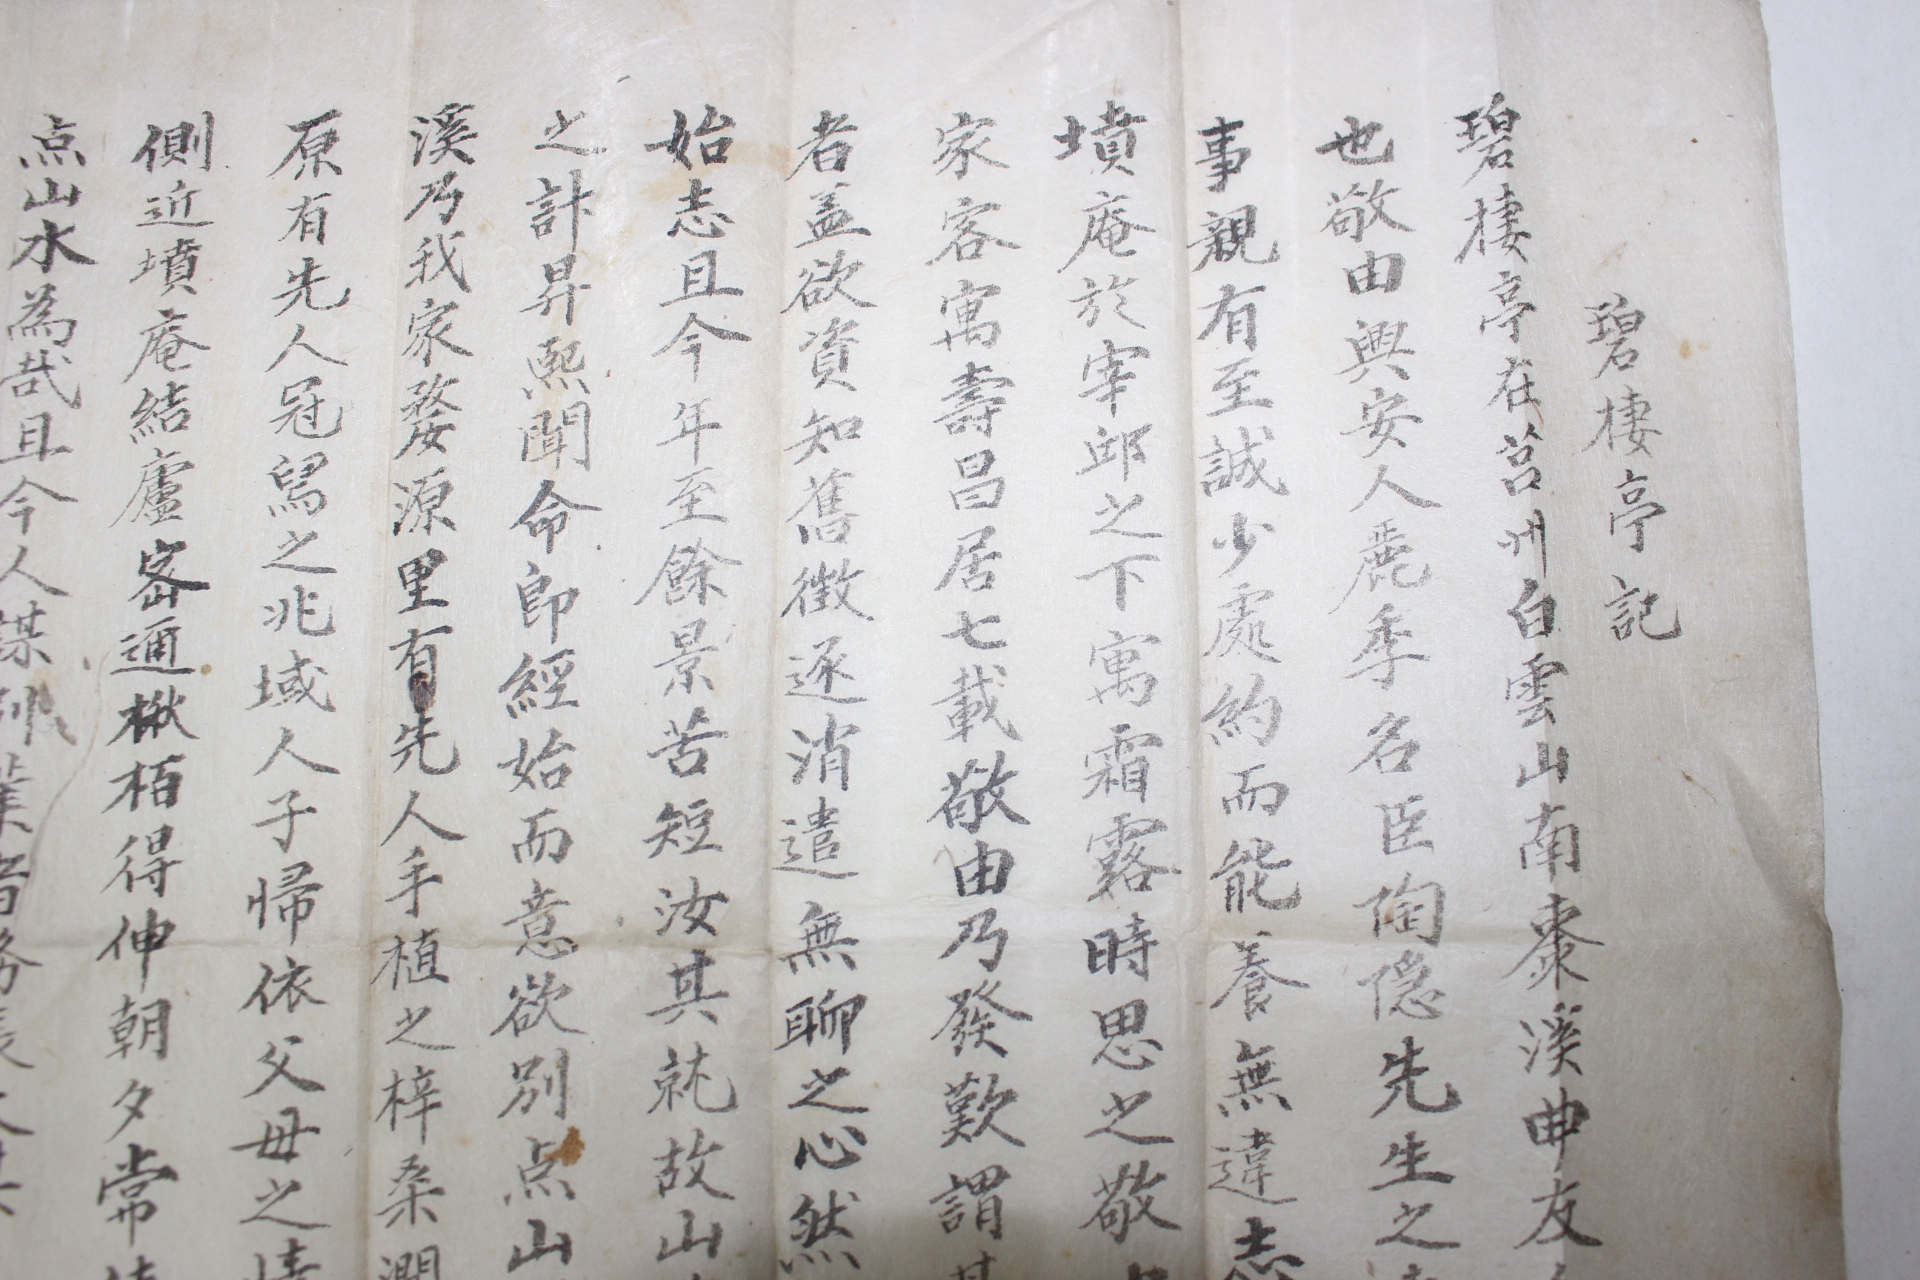 碧棲亭記
碧棲亭在莒州白雲山南棗溪曲友
也敬由興安人麗季名臣陶隐先生之
事親有至誠少處約而能養無違志
墳庵於宰邱之下寓霜露時思之敬
家客寓壽昌居七載敬由乃發歎謂其
者盖欲資知舊徴逐消遣無聊之心然
始志且今年至餘景苦短汝其就故山
之計昇熙聞命卽經始而意欲別点山
溪乃我家婺源里有先人手植之梓桑澗
原有先人冠舄之兆域人子帰依父母之情
側近墳庵結廬密邇楸栢得伸朝夕常
点山水為哉且今人謀